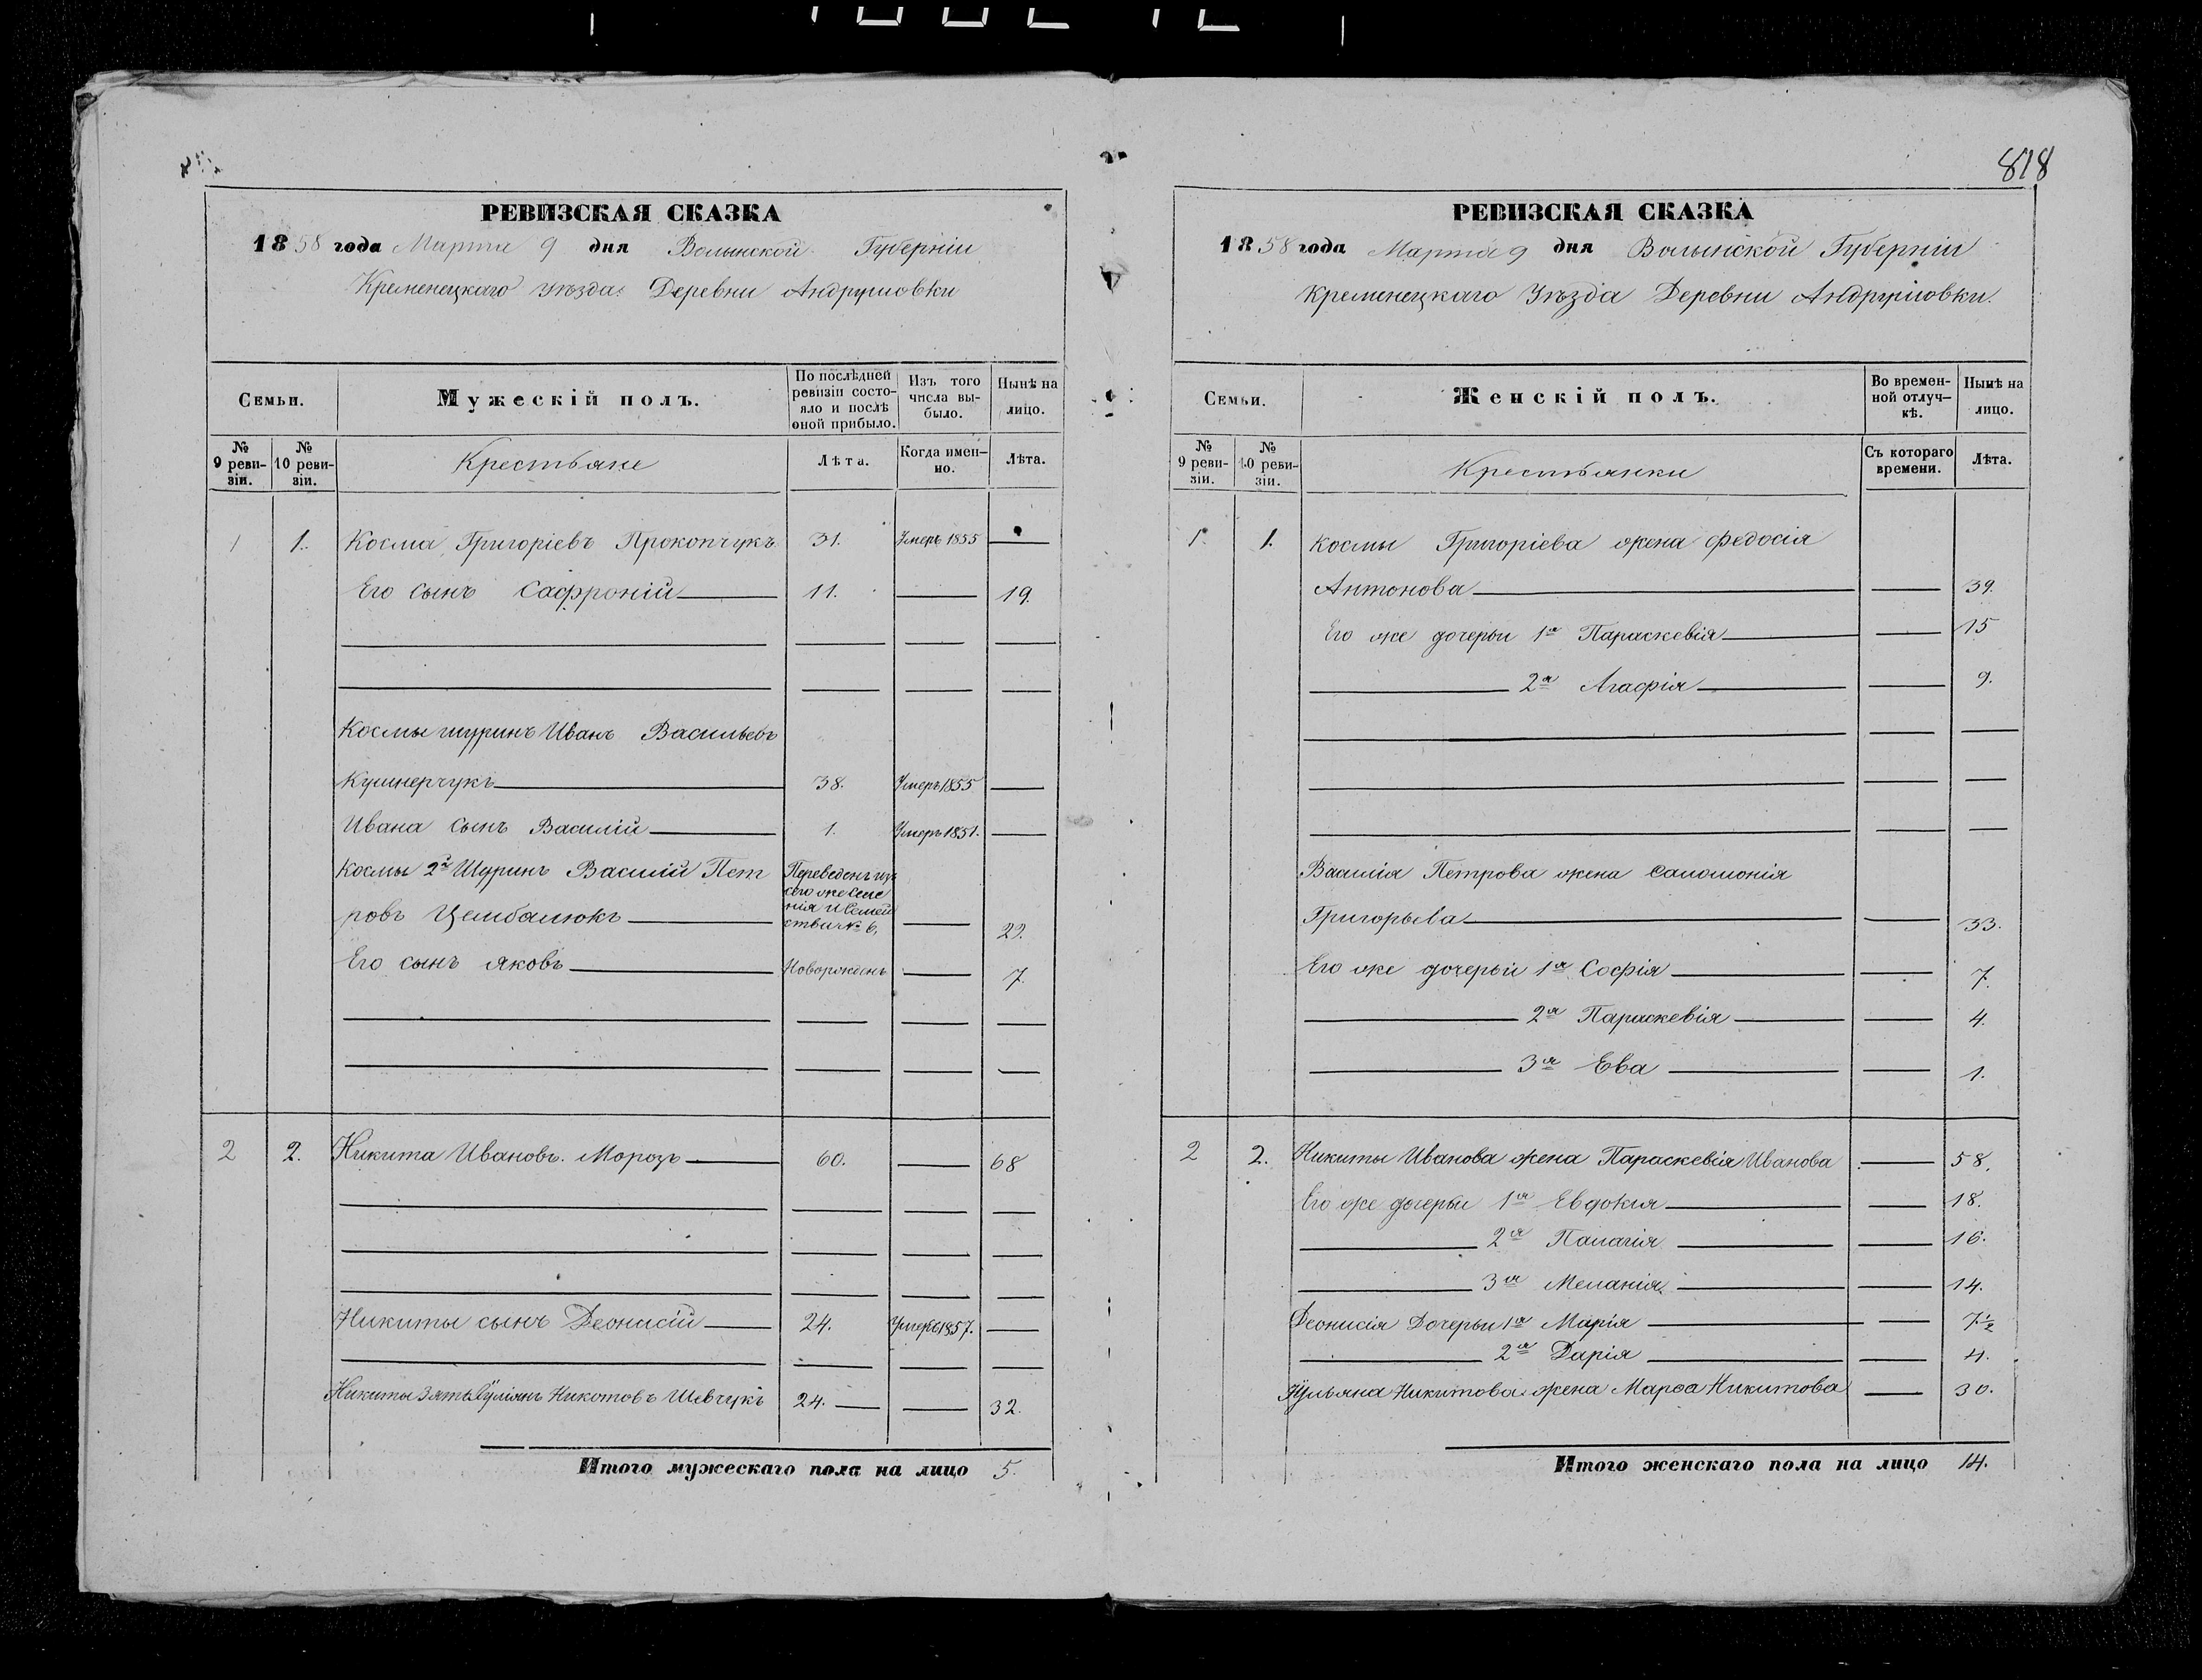 818
РЕВИЗСКАЯ СКАЗКА
1858 года Марта 9 дня Волынской Губерніи
Кременецкаго уѣзда Деревни Андрушовки
Семьи.
Мужескій полъ.
По послѣдней ревизіи состояло и послѣ оной прибыло.
Изъ того числа выбыло.
Нынѣ на лицо.
№ 9 ревизіи.
№ 10 ревизіи.
Крестьяне
Лѣта.
Когда именно.
Лѣта.
1 1. Косма Григоріевъ Прокопчукъ 31. Умеръ 1855 —
Его сынъ Сафроній — 11. — 19.
Космы шуринъ Иванъ Васильевъ
Кушнерчукъ — 38. Умеръ 1855 —
Ивана сынъ Василій — 1. Умеръ 1851. —
Космы 2й Шуринъ Василій Пет
ровъ Цымбалюкъ — Переведенъ изъ сего же селенія и семейства № 6. — 22.
Его сынъ Яковъ — Новорожденъ — 7.
2 2. Никита Ивановъ Морозъ — 60. — 68
Никиты сынъ Деонисій — 24. Умеръ 1857. —
Никиты зять Юліянъ Никитовъ Шевчукъ 24. — — 32.
Итого мужескаго пола на лицо 5.
РЕВИЗСКАЯ СКАЗКА
1858 года Марта 9 дня Волынской Губерніи
Кременецкаго Уѣзда Деревни Андрушовки.
Семьи.
Женскій полъ.
Во временной отлучкѣ.
Нынѣ на лицо.
№ 9 ревизіи.
№ 10 ревизіи.
Крестьянки
Съ котораго времени.
Лѣта.
1 1. Космы Григоріева жена Федосія
Антонова — — 39.
Его же дочери 1я Параскевія — — 15
— 2я Агафія — — 9.
Василія Петрова жена Саломонія
Григорьева — — 33.
Его же дочерьи 1я Софія — — 7.
— 2я Параскевія — — 4.
— 3я Ева — — 1.
2 2. Никиты Иванова жена Параскевія Иванова — 58.
Его же дочерьи 1я Евдокія — — 18.
— 2я Палагія — — 16.
— 3я Меланія — — 14.
Деонисія Дочерьи 1я Марія — — 7½
— 2я Дарія — — 4.
Юльяна Никитова жена Марѳа Никитова — 30.
Итого женскаго пола на лицо 14.